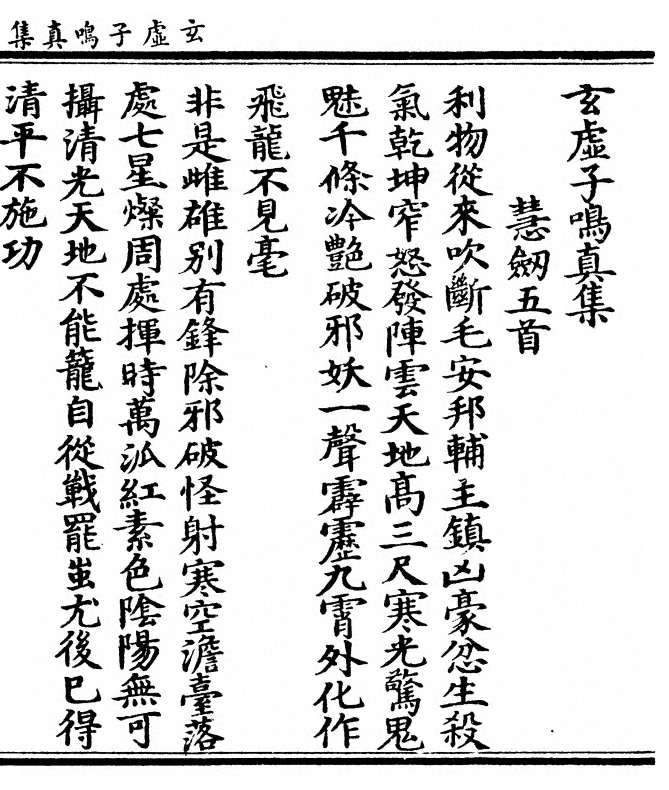 玄虛子鳴真集
玄虛子鳴真集
慧劒五首
利物從來吹斷毛安邦輔主鎮凶豪忿生殺
氣乾坤窄怒發陣雲天地高三尺寒光驚鬼
魅千條冷艷破邪妖一聲霹靂九霄外化作
飛龍不見毫
非是雌雄別有鋒除邪破怪射寒空澹臺落
處七星燦周處揮時萬派紅素色陰陽無可
攝清光天地不能籠自從戰罷蚩尤後已得
清平不施功